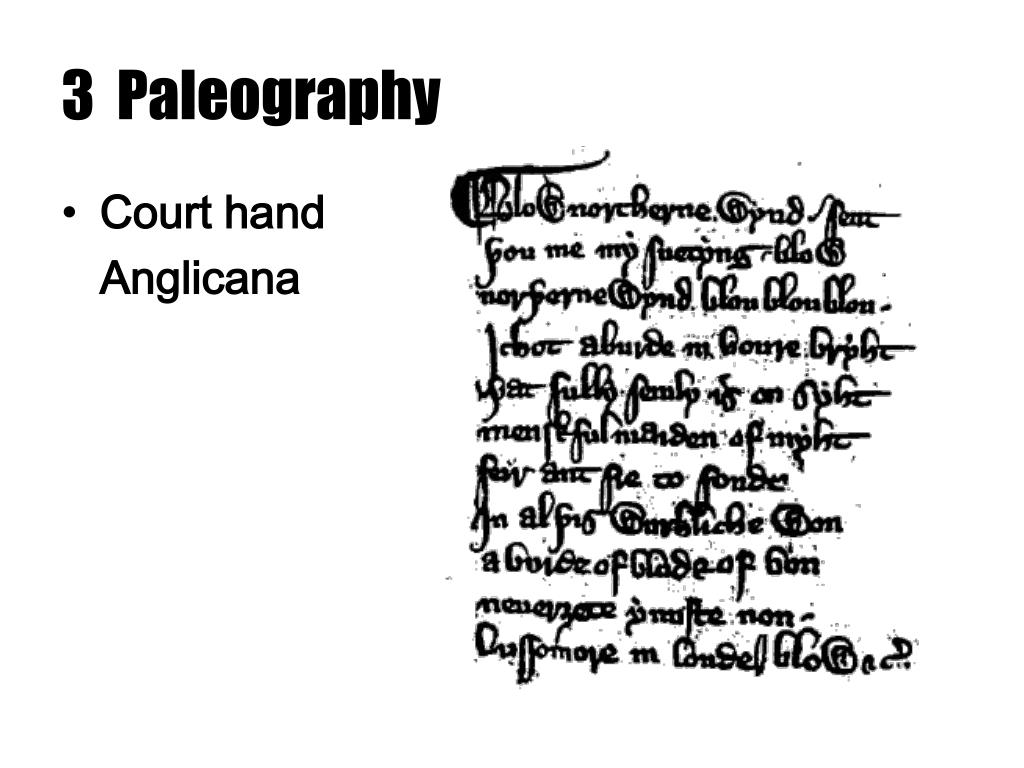 3 Paleography
• Court hand
Anglicana
Blow northerne wynd sent
þou me my suetyng blow
norþerne wynd blou blou blou
Ichot a burde in boure bryht
þat fully semly is on syht
menskful maiden of myht
feir ant fre to fonde
In al þis wurhliche won
a burde of blod & of bon
neuer ȝete y nuste non
lussomore in londe blow &c